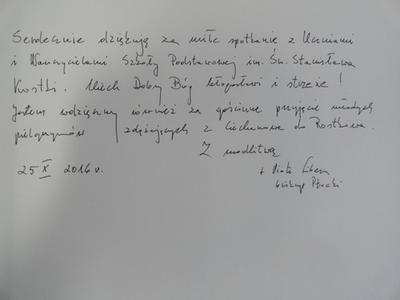 Serdecznie dziękuję za miłe spotkanie z Uczniami
i Nauczycielami Szkoły Podstawowej im. Św. Stanisława
Kostki. Niech Dobry Bóg błogosławi i strzeże!
Jestem wdzięczny również za gościnne przyjęcie młodych
pielgrzymów zdążających z Ciechanowa do Rostkowa.
Z modlitwą
+ Piotr Libera
biskup Płocki
25 X 2016 r.